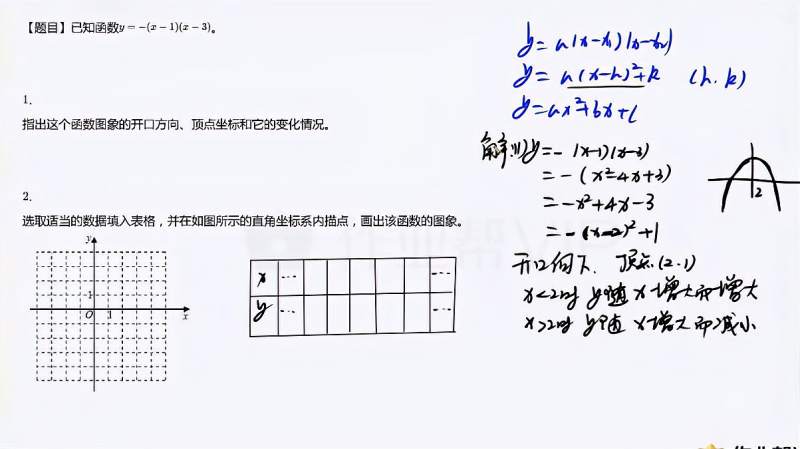 【题目】已知函数y=-(x-1)(x-3)。
1.
指出这个函数图象的开口方向、顶点坐标和它的变化情况。
2.
选取适当的数据填入表格，并在如图所示的直角坐标系内描点，画出该函数的图象。
y
1
O 1 x
x ... ...
y ... ...
y=a(x-x₁)(x-x₂)
y=a(x-h)²+k (h,k)
y=ax²+bx+c
解:(1)y=-(x-1)(x-3)
=-(x²-4x+3)
=-x²+4x-3
=-(x-2)²+1
2
开口向下、顶点(2,1)
x<2时 y随x增大而增大
x>2时 y随x增大而减小